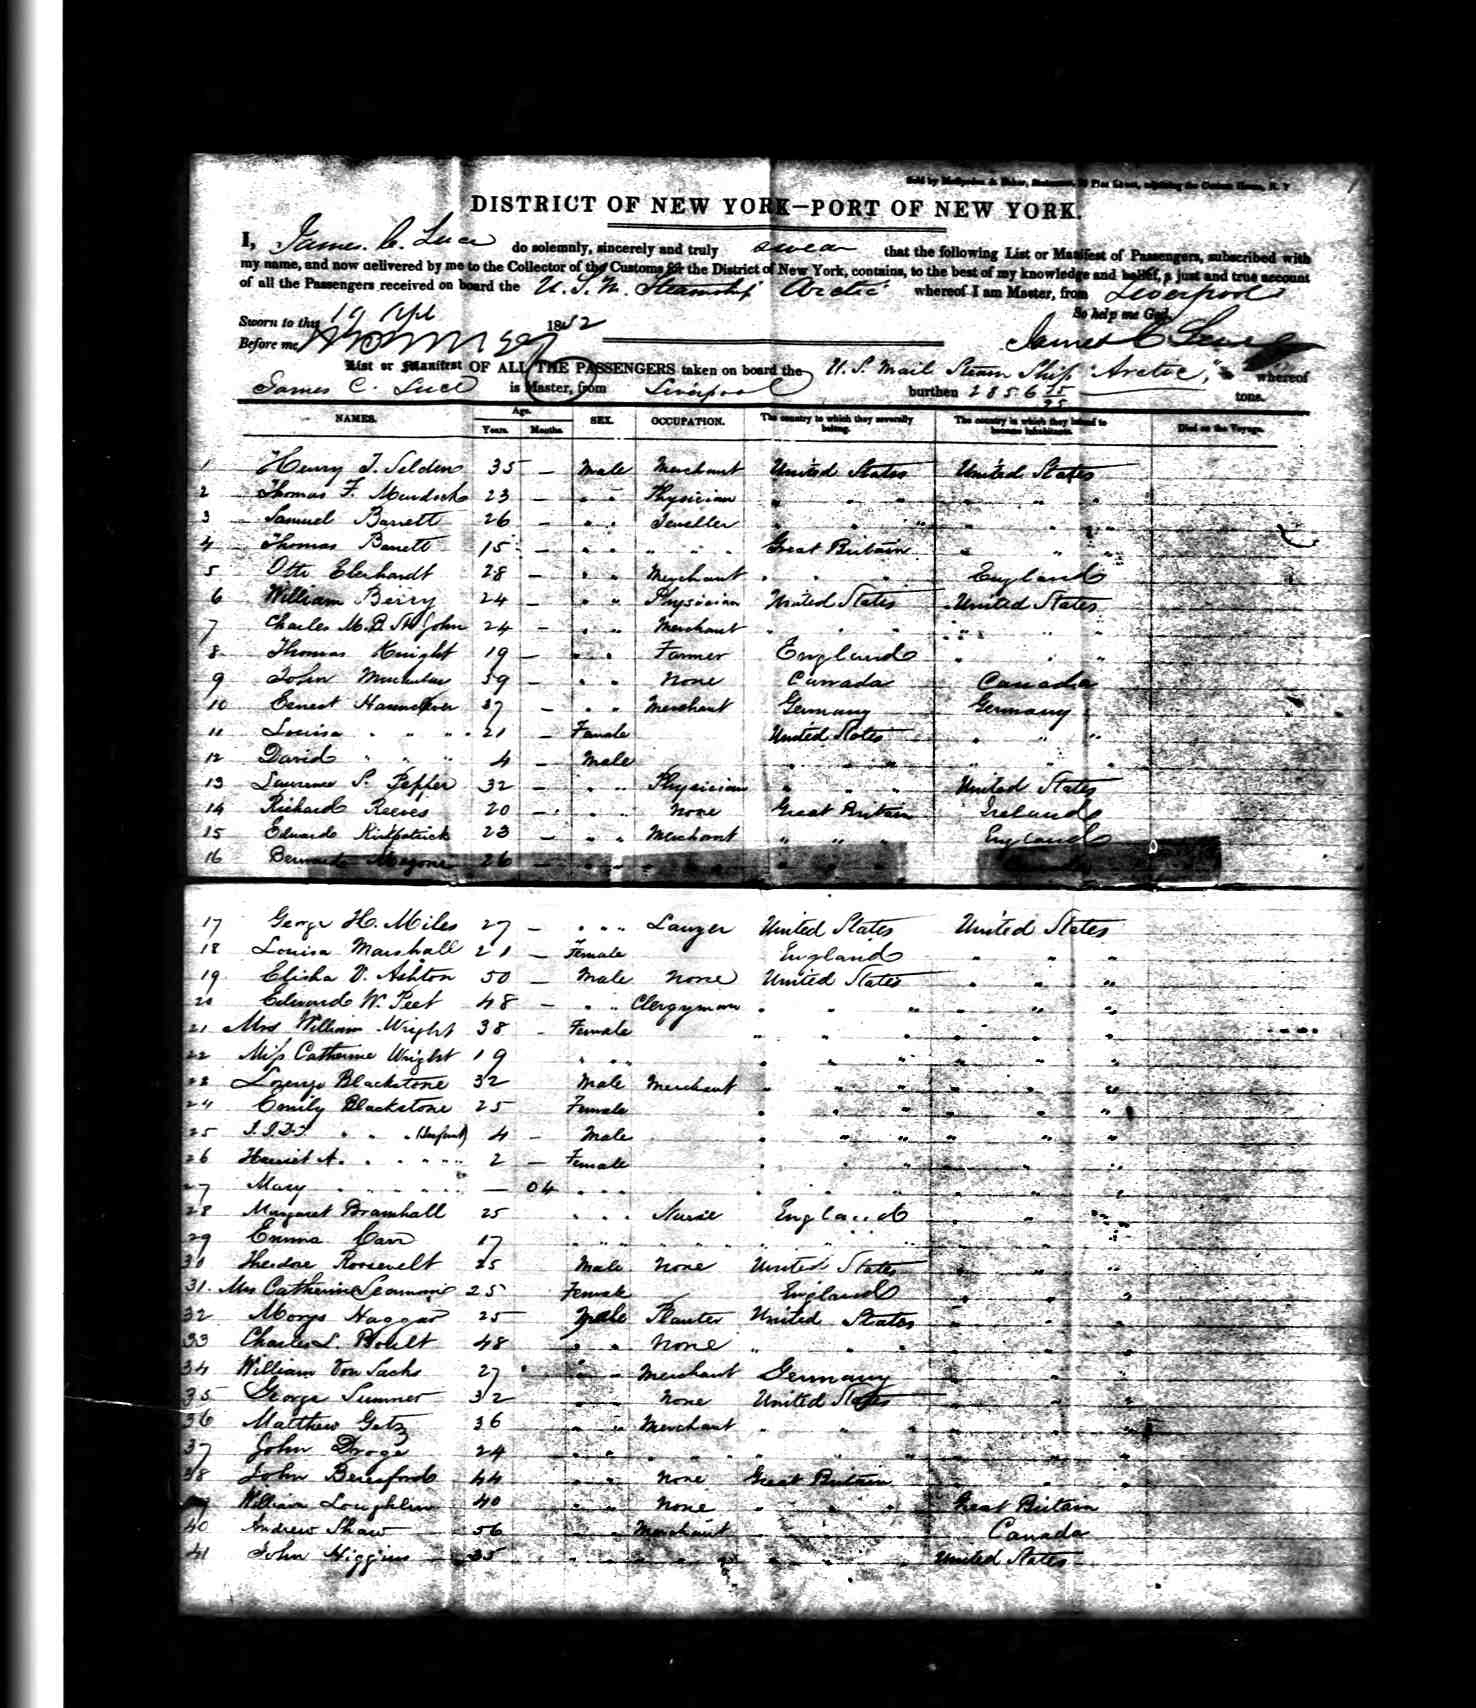 DISTRICT OF NEW YORK—PORT OF NEW YORK.
I, James C. Luce do solemnly, sincerely and truly swear that the following List or Manifest of Passengers, subscribed with
my name, and now delivered by me to the Collector of the Customs for the District of New York, contains, to the best of my knowledge and belief, a just and true account
of all the Passengers received on board the U. S. M. Steamship Arctic whereof I am Master, from Liverpool
So help me God.
Sworn to this 19 Apl 1852
Before me James C Luce
List or Manifest OF ALL THE PASSENGERS taken on board the U. S. Mail Steam Ship "Arctic," whereof
James C. Luce is Master, from Liverpool burthen 2856 tons.
NAMES. Age. Years. Months. SEX. OCCUPATION. The country to which they severally belong. The country in which they intend to become inhabitants. Died on the Voyage.
1 Henry J. Selden 35 — Male Merchant United States United States
2 Thomas F. Murdoch 23 — " " Physician " " " " " "
3 Samuel Barrett 26 — " " Jeweller " " " " " "
4 Thomas Barrett 15 — " " " " " Great Britain " " "
5 Otto Eberhardt 28 — " " Merchant " " " England
6 William Berry 24 — " " Physician United States United States
7 Charles M. B. St John 24 — " " Merchant " " " " " "
8 Thomas Knight 19 — " " Farmer England " " "
9 John 39 — " " None Canada Canada
10 Ernest 37 — " " Merchant Germany Germany
11 Louisa " " " 21 — Female United States " " "
12 David " " " 4 — Male " " " " " "
13 Lawrence S. 32 — " " Physician " " " United States
14 Richard Reeves 20 — " " None Great Britain Ireland
15 Edward Kirkpatrick 23 — " " Merchant " " " England
16 Bernard 26 — " " " " " " "
17 George H. Miles 27 — " " " Lawyer United States United States
18 Louisa Marshall 21 — Female England " " "
19 Elisha V. Ashton 50 — Male None United States " " "
20 Edward W. Peet 48 — " " Clergyman " " " " " "
21 Mrs William Wright 38 — Female " " " " " "
22 Miss Catherine Wright 19 " " " " " " " " "
23 Lorenzo Blackstone 32 Male Merchant " " " " " "
24 Emily Blackstone 25 Female " " " " " "
25 " " " (Infant) 4 — Male " " " " " "
26 Harriet A. " " " " 2 — Female " " " " " "
27 Mary " " " " — 04 " " " " " " " " "
28 Margaret Bramhall 25 " " " Nurse England " " "
29 Emma Carr 17 " " " " " " " " " " "
30 Theodore Roosevelt 25 Male None United States " " "
31 Mrs Catherine Seaman 25 Female England " " "
32 Haggar 25 Male Planter United States " " "
33 Charles L. 48 " " None " " " " " "
34 William Von Sachs 27 " " Merchant Germany " " "
35 George Sumner 32 " " None United States " " "
36 Matthew Getz 36 " " Merchant " " " " " "
37 John Droge 24 " " " " " " " " " " "
38 John Beresford 44 " " None Great Britain " " "
39 William Loughlin 40 " " None " " " Great Britain
40 Andrew Shaw 56 " " Merchant " " " Canada
41 John Higgins 35 " " " " " " " United States